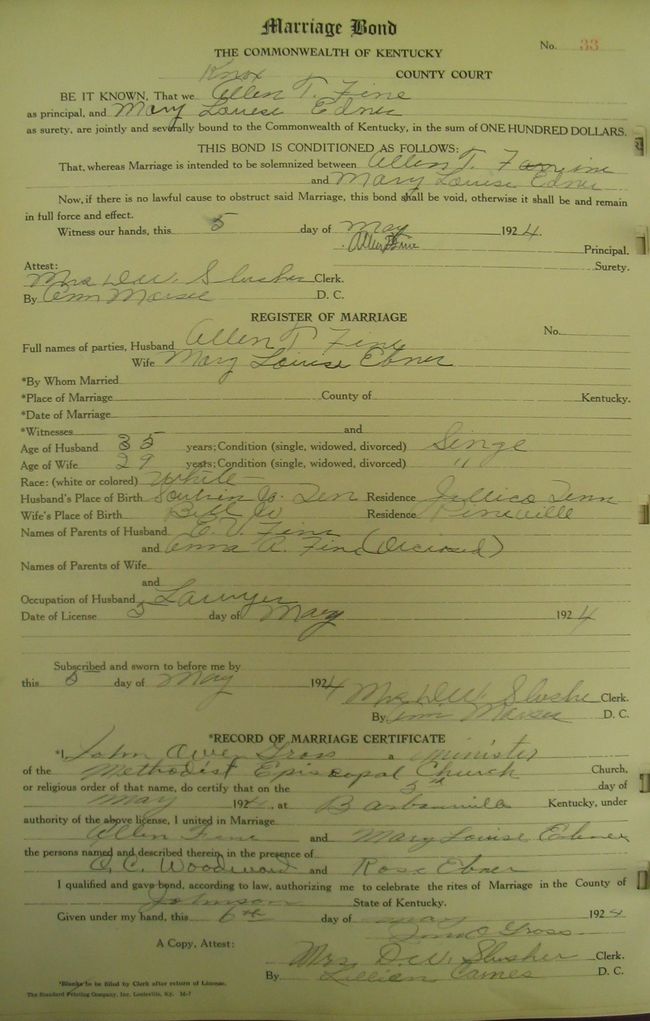 Marriage Bond
No. 33
THE COMMONWEALTH OF KENTUCKY
Knox COUNTY COURT
BE IT KNOWN, That we Allen T. Fine
as principal, and Mary Louise Ebner
as surety, are jointly and severally bound to the Commonwealth of Kentucky, in the sum of ONE HUNDRED DOLLARS.
THIS BOND IS CONDITIONED AS FOLLOWS:
That, whereas Marriage is intended to be solemnized between Allen T. Fine
and Mary Louise Ebner
Now, if there is no lawful cause to obstruct said Marriage, this bond shall be void, otherwise it shall be and remain
in full force and effect.
Witness our hands, this 5 day of May 1924.
Allen T Fine Principal.
Surety.
Attest:
Mrs D.W. Slusher Clerk.
By D. C.
REGISTER OF MARRIAGE
No.
Full names of parties, Husband Allen T Fine
Wife Mary Louise Ebner
*By Whom Married
*Place of Marriage County of Kentucky.
*Date of Marriage
*Witnesses and
Age of Husband 35 years; Condition (single, widowed, divorced) Singe
Age of Wife 29 years; Condition (single, widowed, divorced) "
Race: (white or colored) White
Husband's Place of Birth Co. Ten Residence Jellico Tenn
Wife's Place of Birth Bell Co Residence Pineville
Names of Parents of Husband E. V. Fine
and Anna A. Fine (Deceased)
Names of Parents of Wife
and
Occupation of Husband Lawyer
Date of License 5 day of May 1924
Subscribed and sworn to before me by
this 5 day of May 1924
Mrs D.W. Slusher Clerk.
By D. C.
*RECORD OF MARRIAGE CERTIFICATE
*I, John Owen Gross a minister
of the Methodist Episcopal Church Church,
or religious order of that name, do certify that on the 5th day of
May 1924, at Barbourville Kentucky, under
authority of the above license, I united in Marriage
Allen Fine and Mary Louise Ebner
the persons named and described therein, in the presence of
O. C. Woodward and Rose Ebner
I qualified and gave bond, according to law, authorizing me to celebrate the rites of Marriage in the County of
Johnson State of Kentucky.
Given under my hand, this 6th day of May 1924
John O Gross
A Copy, Attest: Mrs D.W. Slusher Clerk.
By Lillian D. C.
*Blanks to be filed by Clerk after return of License.
The Standard Printing Company, Inc. Louisville, Ky. 16-7